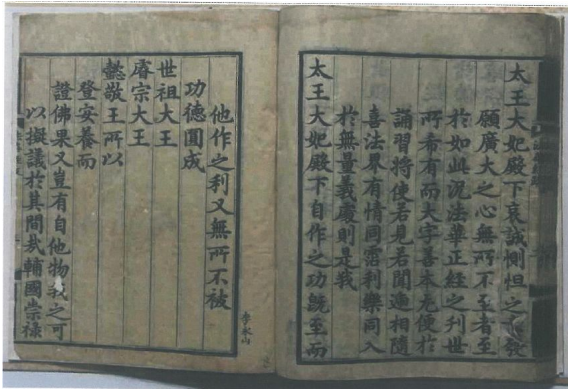 太王大妃殿下哀誠惻怛之 發
願廣大之心無所不至者至
於如此況法華正經之刋世
所希有而大字善本尤便於
誦習將使若見若聞逓相隨
喜法界有情同霑利樂同入
於無量義處則是我
太王大妃殿下自作之功旣至而
他作之利又無所不被
功德圎成
世祖大王
睿宗大王
懿敬王所以
登安養而
證佛果又豈有自他物我之可
以擬議於其間㢤輔國崇祿
李永山